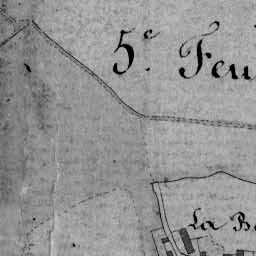 5e Feu
La B